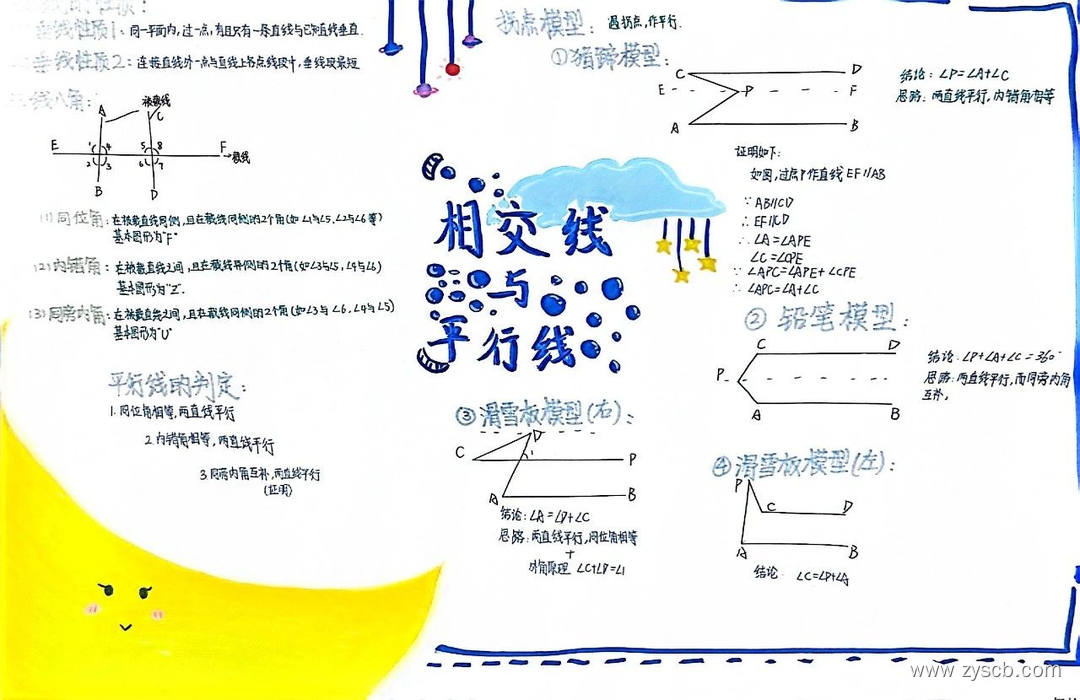 垂线性质1：同一平面内，过一点，有且只有一条直线与已知直线垂直．
垂线性质2：连接直线外一点与直线上各点线段中，垂线段最短
线八角：
A
被截线
C
E
1 4
5 8
F
→截线
2 3
6 7
B
D
(1)同位角：在被截直线同侧，且在截线同侧的2个角(如∠1与∠5，∠2与∠6等)
基本图形为"F"
(2)内错角：在被截直线之间，且在截线异侧的2个角(如∠3与∠5，∠4与∠6)
基本图形为"Z"．
(3)同旁内角：在被截直线之间，且在截线同侧的2个角(如∠3与∠6，∠4与∠5)
基本图形为"U"
平行线的判定：
1.同位角相等，两直线平行
2.内错角相等，两直线平行
3.同旁内角互补，两直线平行
(证明)
相交线
与
平行线
拐点模型：遇拐点，作平行．
①猪蹄模型：
C
D
E
P
F
A
B
结论：∠P=∠A+∠C
思路：两直线平行，内错角相等
证明如下：
如图，过点P作直线EF∥AB
∵AB∥CD
∴EF∥CD
∴∠A=∠APE
∠C=∠CPE
∵∠APC=∠APE+∠CPE
∴∠APC=∠A+∠C
②铅笔模型：
C
D
P
A
B
结论：∠P+∠A+∠C=360°
思路：两直线平行，而同旁内角
互补，
③滑雪板模型(右)：
D
C
1
P
A
B
结论：∠A=∠D+∠C
思路：两直线平行，同位角相等
+
外角原理 ∠C+∠D=∠1
④滑雪板模型(左)：
P
C
D
A
B
结论 ∠C=∠P+∠A
www.zyscb.com